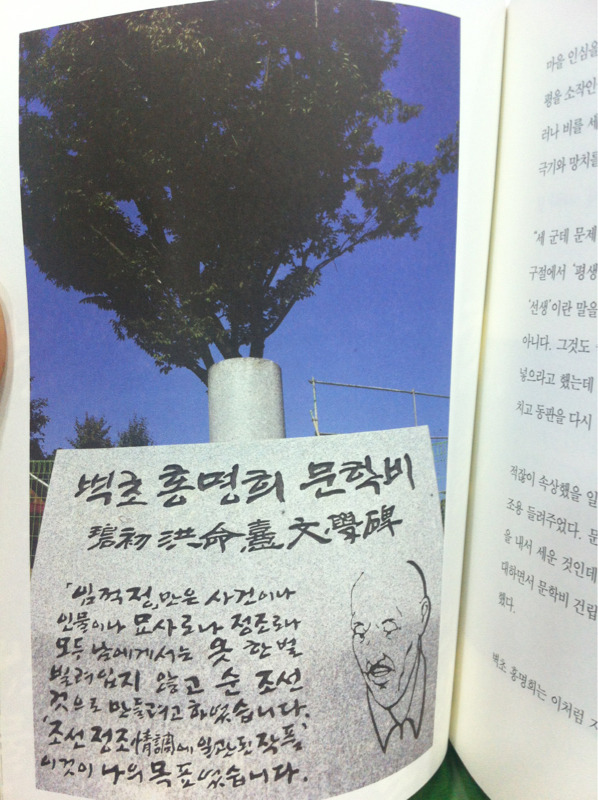 벽초 홍명희 문학비
碧初 洪命憙 文學碑
「임꺽정」만은 사건이나
인물이나 묘사로나 정조로나
모두 남에게서는 옷 한벌
빌려입지 않고 순 조선
것으로 만들려고 하였습니다.
'조선 정조(情調)에 일관된 작품'
이것이 나의 목표였습니다.
마을 인심을
평을 소작인
러나 비를 세
극기와 망치를
"세 군데 문제
구절에서 '평생
'선생'이란 말을
아니다. 그것도
넣으라고 했는데
치고 동판을 다시
적잖이 속상했을 일
조용 들려주었다. 문
을 내서 세운 것인데
대하면서 문학비 건립
했다.
벽초 홍명희는 이처럼